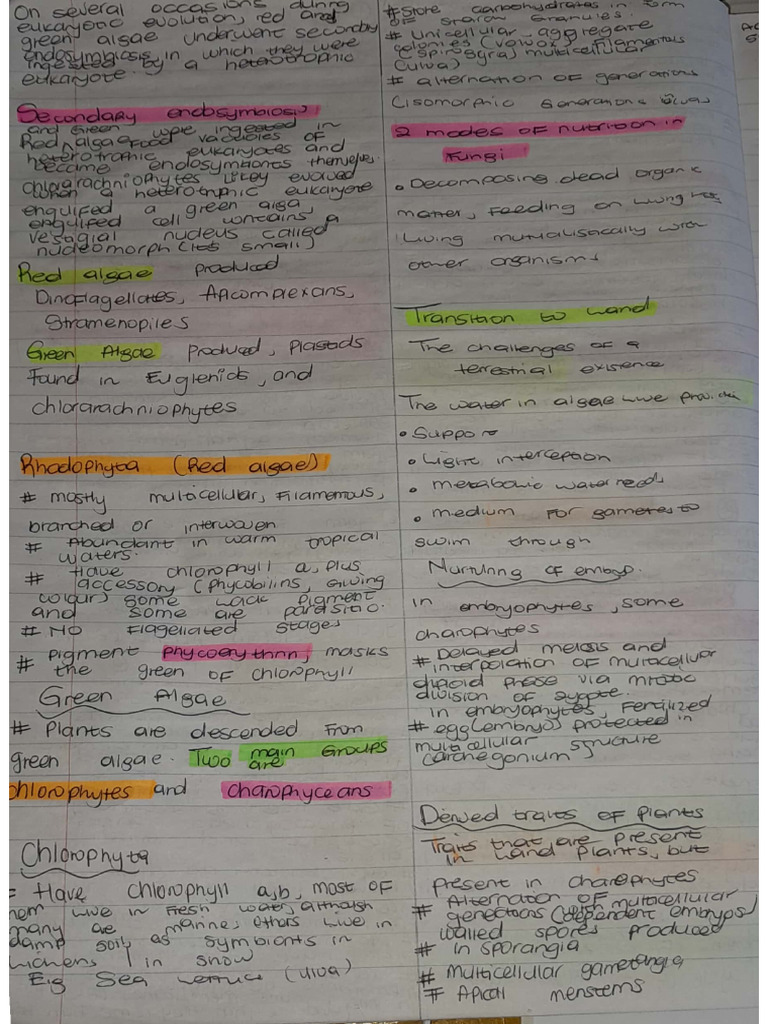 On several occasions during
eukaryotic evolution, red and
green algae underwent secondary
endosymbiosis in which they were
ingested by a heterotrophic
eukaryote.
Secondary endosymbiosis
and Green were ingested in
Red algae food vacuoles of
heterotrophic eukaryotes and
became endosymbionts themselves.
Chlorarachniophytes likely evolved
when a heterotrophic eukaryote
engulfed a green alga,
engulfed cell contains a
vestigial nucleus called
nucleomorph (its small)
Red algae produced
Dinoflagellates, Apicomplexans,
Stramenopiles
Green Algae produced, Plastids
Found in Euglenids, and
chlorarachniophytes
Rhodophyta (Red algae)
# mostly multicellular, Filamenous,
branched or interwoven
# Abundant in warm tropical
waters.
# Have chlorophyll a, plus
accessory (Phycobilins, Giving
colour) some lack pigment
and some are parasitic.
# NO Flagellated stages
# Pigment phycoerythrin, masks
the green of chlorophyll
Green Algae
# Plants are descended from
green algae. Two main Groups
are
chlorophytes and charophyceans
Chlorophyta
= Have chlorophyll a,b, most of
hem live in fresh water, although
many are marine, others live in
damp soil as symbionts in
lichens / in snow
Eg Sea lettuce (ulva)
#Store carbohydrates in form
of starch granules.
# Unicellular, aggregate
colonies (volvox) Filamentous
(Spirogyra) multicellular
(ulva)
# alternation of generations
(isomorphic Generations ulva)
2 modes of nutrition in
Fungi
• Decomposing dead organic
matter, Feeding on living
Living mutualistically with
other organisms
Transition to Land
The challenges of a
terrestrial existence
The water in algae live
• Support
• Light interception
• metabolic water needs
• medium for gametes to
swim through
Nurturing of embryo.
in embryophytes, some
charophytes
# Delayed meiosis and
interpolation of multicellular
diploid phase via mitotic
division of zygote.
in embryophytes, Fertilized
# egg (embryo) protected in
multicellular structure
(archegonium)
Derived traits of Plants
Traits that are present
in Land Plants, but
present in charophytes
# Alternation of multicellular
generations (dependent embryos)
walled spores produced
# in sporangia
# multicellular gametangia
# Apical meristems